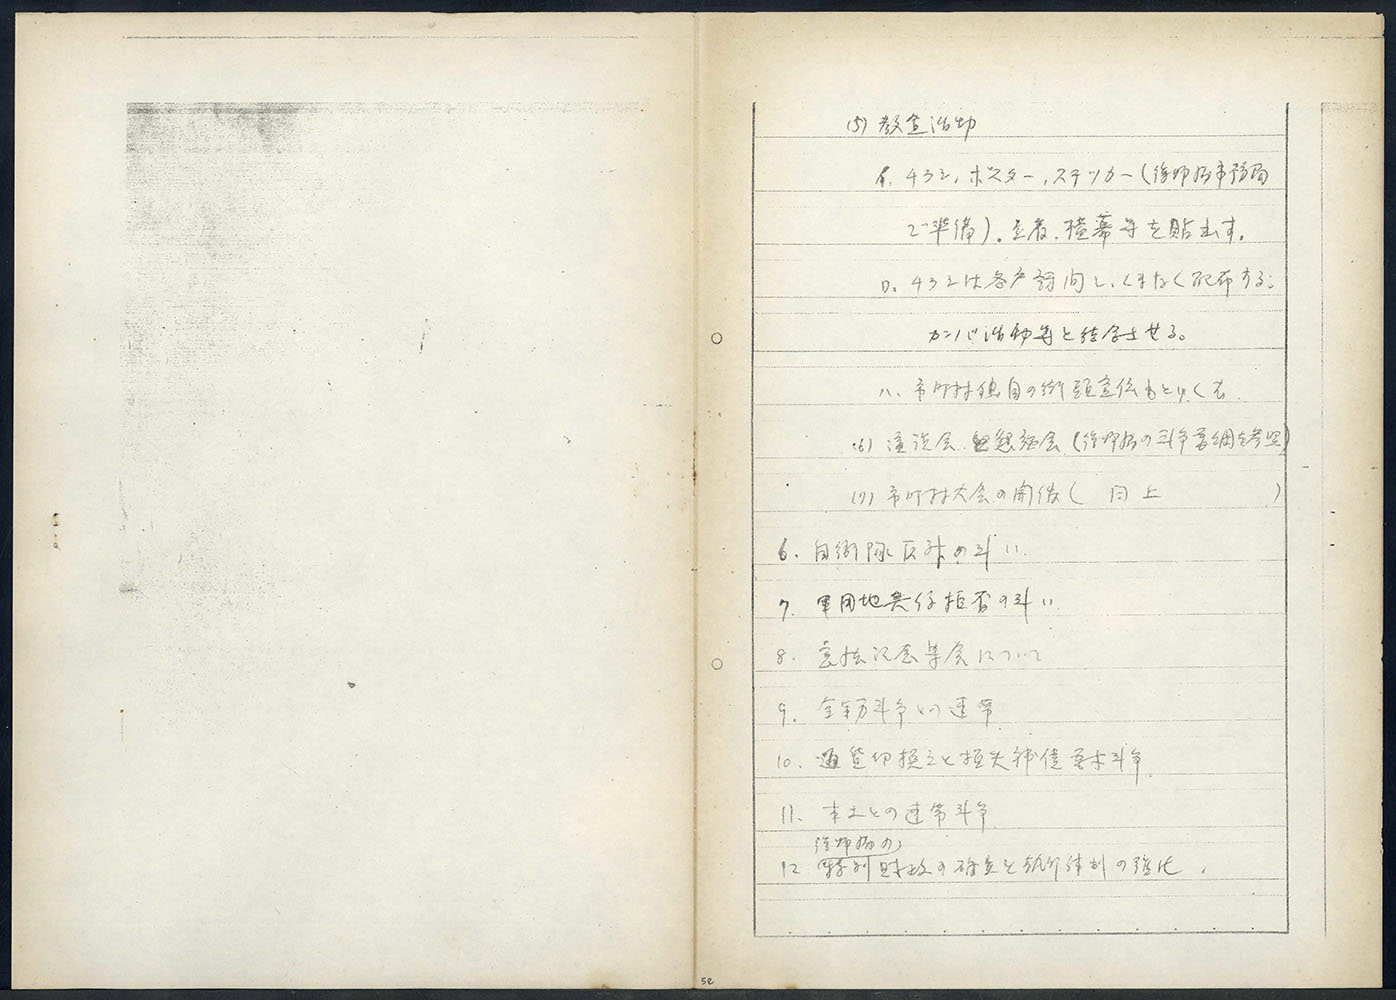 (5) 教宣活动
イ. チラシ、ポスター、ステッカー(復帰協事務局
で準備)。立看、横幕等を貼出す。
ロ. チラシは各戸訪問し、くまなく配布する。
カンパ活动等と結合させる。
ハ、市町村独自の街頭宣伝もとりくむ
(6) 演説会、懇話会(復帰協の斗争要綱を参照)
(7) 市町村大会の開催( 同上 )
6. 自衛隊反対の斗い.
7. 軍用地契約拒否の斗い
8. 憲法記念集会について
9. 全軍労斗争との連帯
10. 通貨切換えと損失補償要求斗争.
11. 本土との連帯斗争
復帰協の
12 特別財政の確立と執行体制の強化.
52